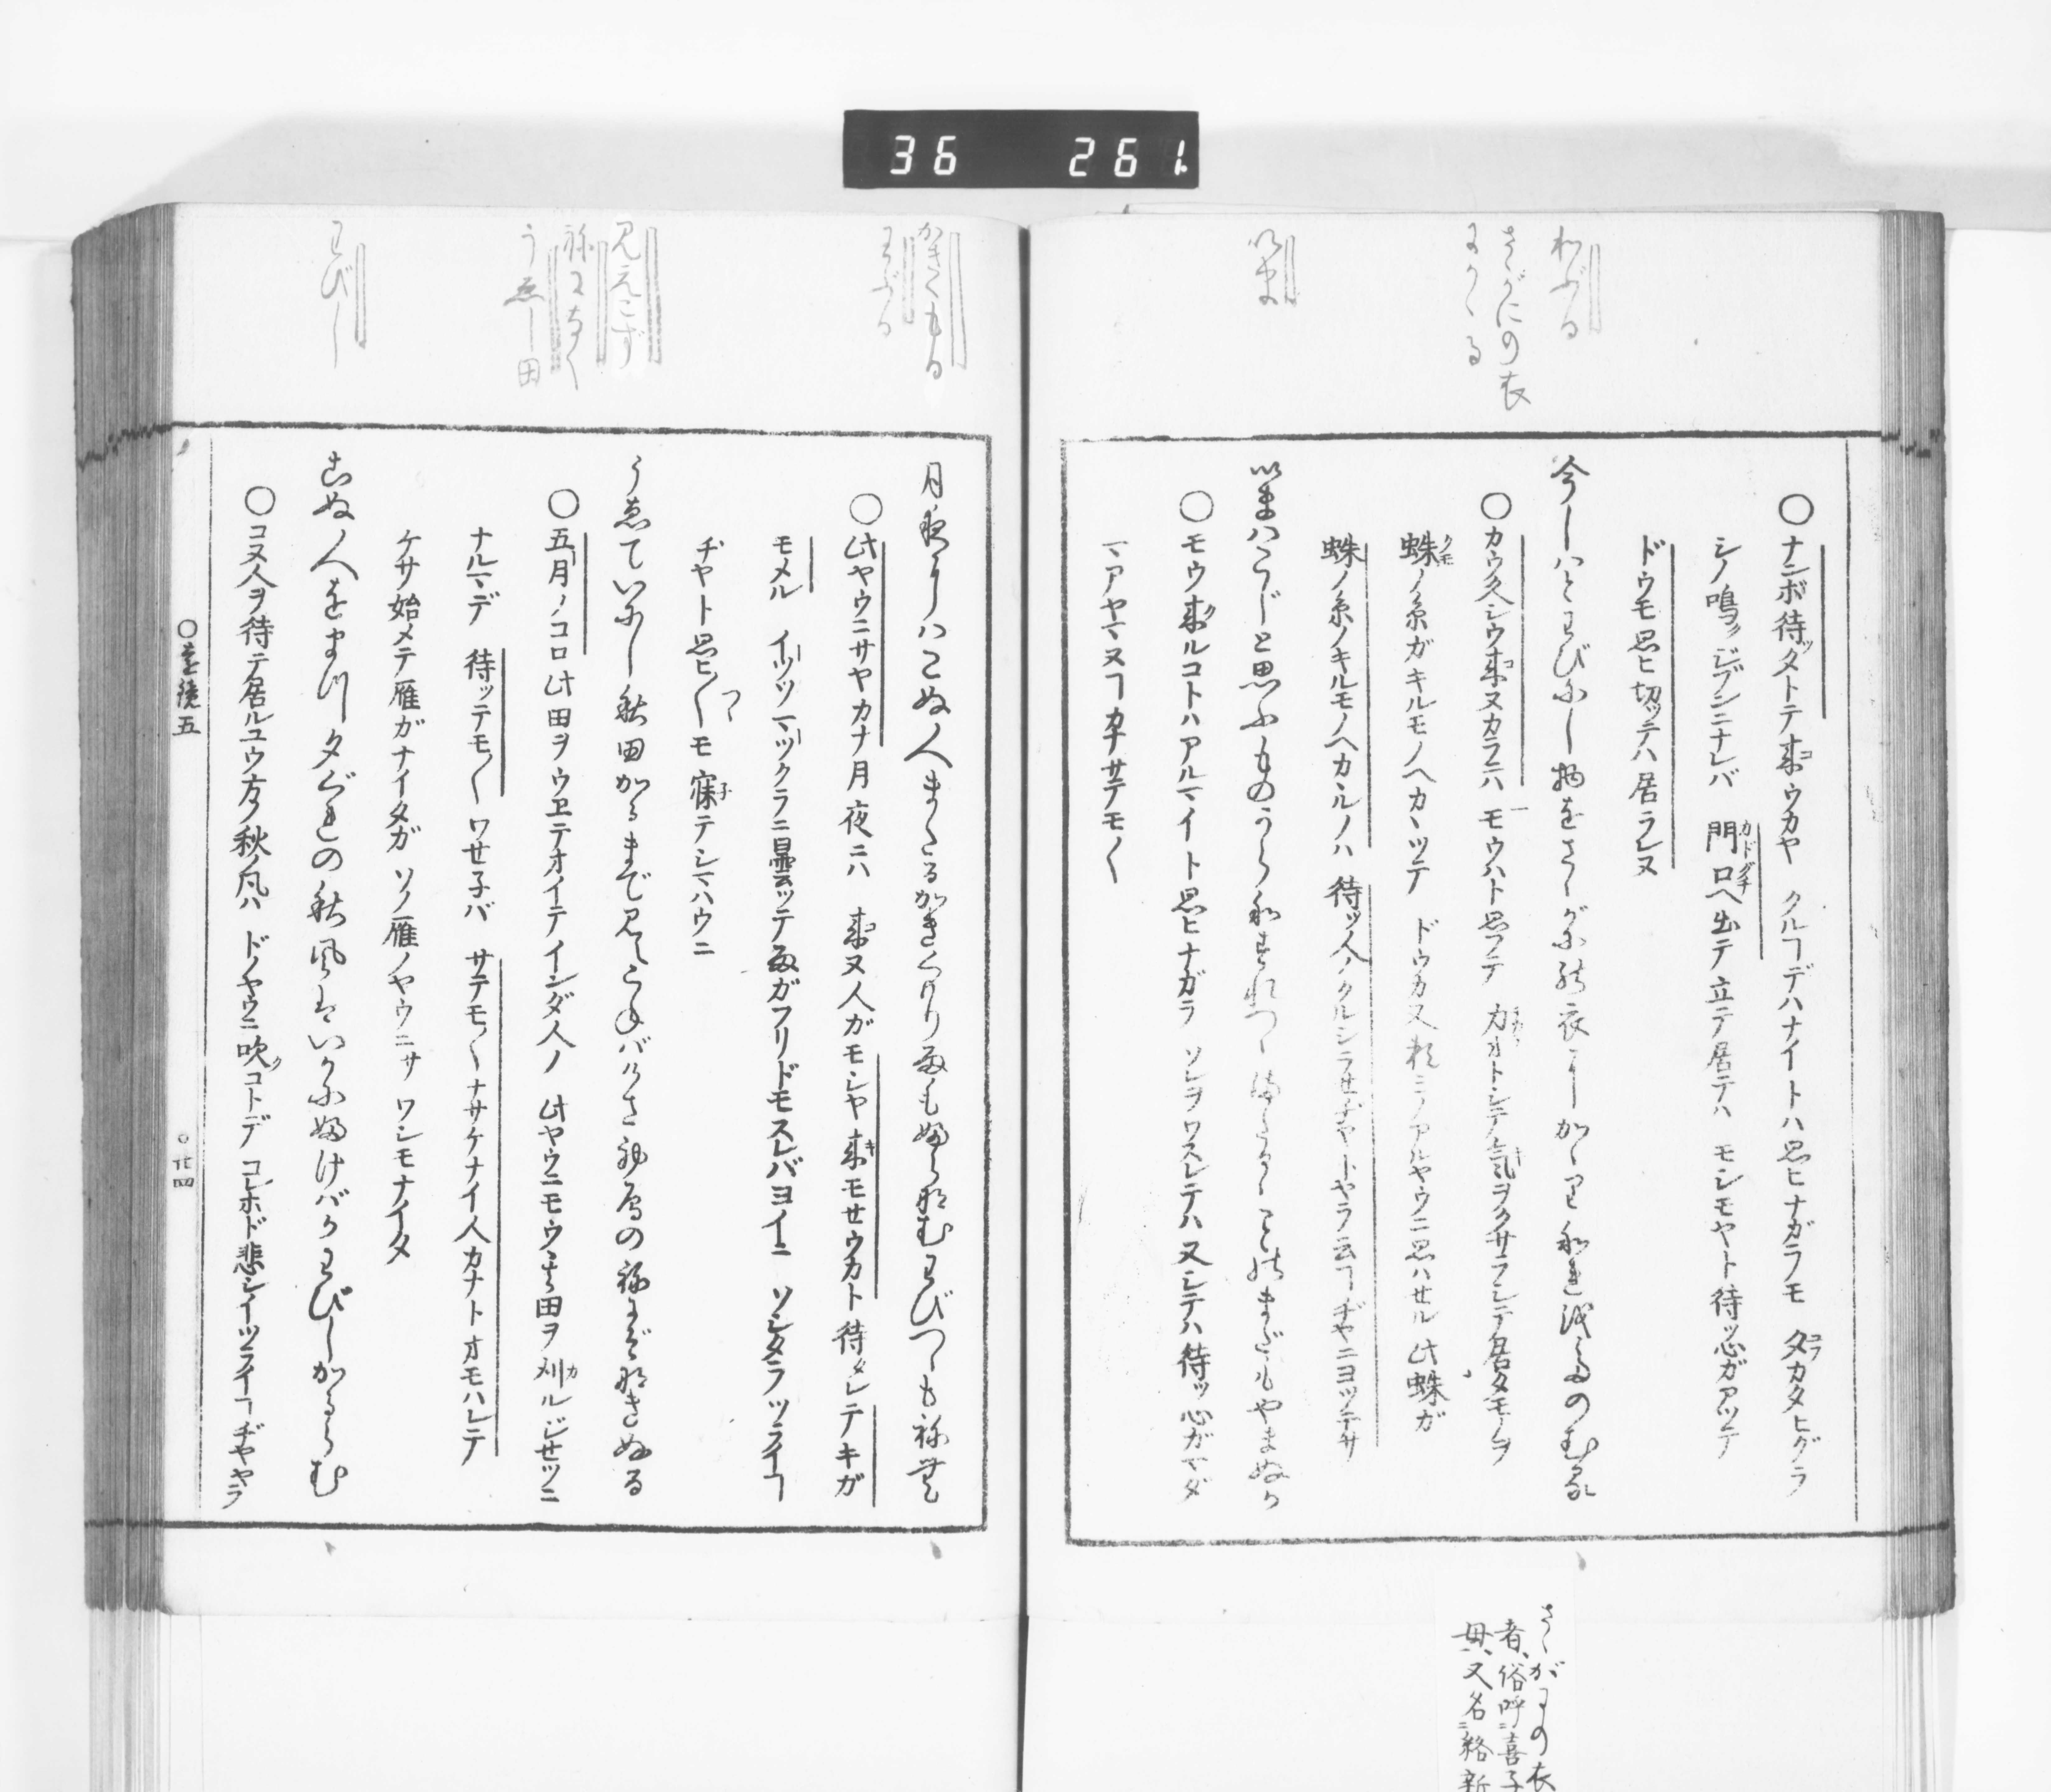 36 261
わぶる
さゝがにの衣
にかゝる
いま
○ナンボ待ッタトテ來ウカヤ クルヿデハナイトハ思ヒナガラモ 夕カタヒグラ
シノ鳴クジブンニナレバ 門口ヘ出テ立テ居テハ モシモヤト待ッ心ガアッテ
ドウモ思ヒ切ッテハ居ラレヌ
今しはとわびにし物をさゝがにの衣にかゝりわれをたのむる
○カウ久シウ來ヌカラニハ モウハト思フテ 力オトシテ気ヲクサラシテ居タモノヲ
蛛ノ糸ガキルモノヘカヽッテ ドウカ又頼ミノアルヤウニ思ハセル 此蛛ガ
蛛ノ糸ノキルモノヘカヽルノハ 待ッ人ノクルシラセヂヤトヤラ云ヿヂヤニヨッテサ
いまはこじと思ふものからわすれつゝまたるゝことのまだもやまぬか
○モウ來ルコトハアルマイト思ヒナガラ ソレヲワスレテハ 又シテハ待ッ心ガマダ
マアヤマヌヿカ サテモ〱
かきくもる
わぶる
見えこず
ねになく
うゑし田
わびし
月夜にはこぬ人またるかきくもり雨もふらなむわびつゝもねむ
○此ヤウニサヤカナ月夜ニハ 來ヌ人ガモシヤ來モセウカト待タレテキガ
モメル イッソマックラニ曇ッテ雨ガフリドモスレバヨイニ ソシタラツライヿ
ヂヤト思ヒ〱モ 寐テシマハウニ
うゑていにし秋田かるまで見えこねバけさ初鴈のねにぞなきぬる
○五月ノコロ此田ヲウヱテオイテインダ人ノ 此ヤウニモウ其田ヲ刈ルジセツニ
ナルマデ 待ッテモ〱ワセ子バ サテモ〱ナサケナイ人カナトオモハレテ
ケサ始メテ雁ガナイタガ ソノ雁ノヤウニサ ワシモナイタ
こぬ人をまつ夕ぐれの秋風はいかにふけバかわびしかるらむ
○コヌ人ヲ待テ居ルユウ方ノ秋ノ風ハ ドノヤウニ吹クコトデ コレホド悲シイツライヿヂヤヤラ
○遠鏡五
○廿四
さゝがにの衣
者、俗呼喜子
母、又名絡新